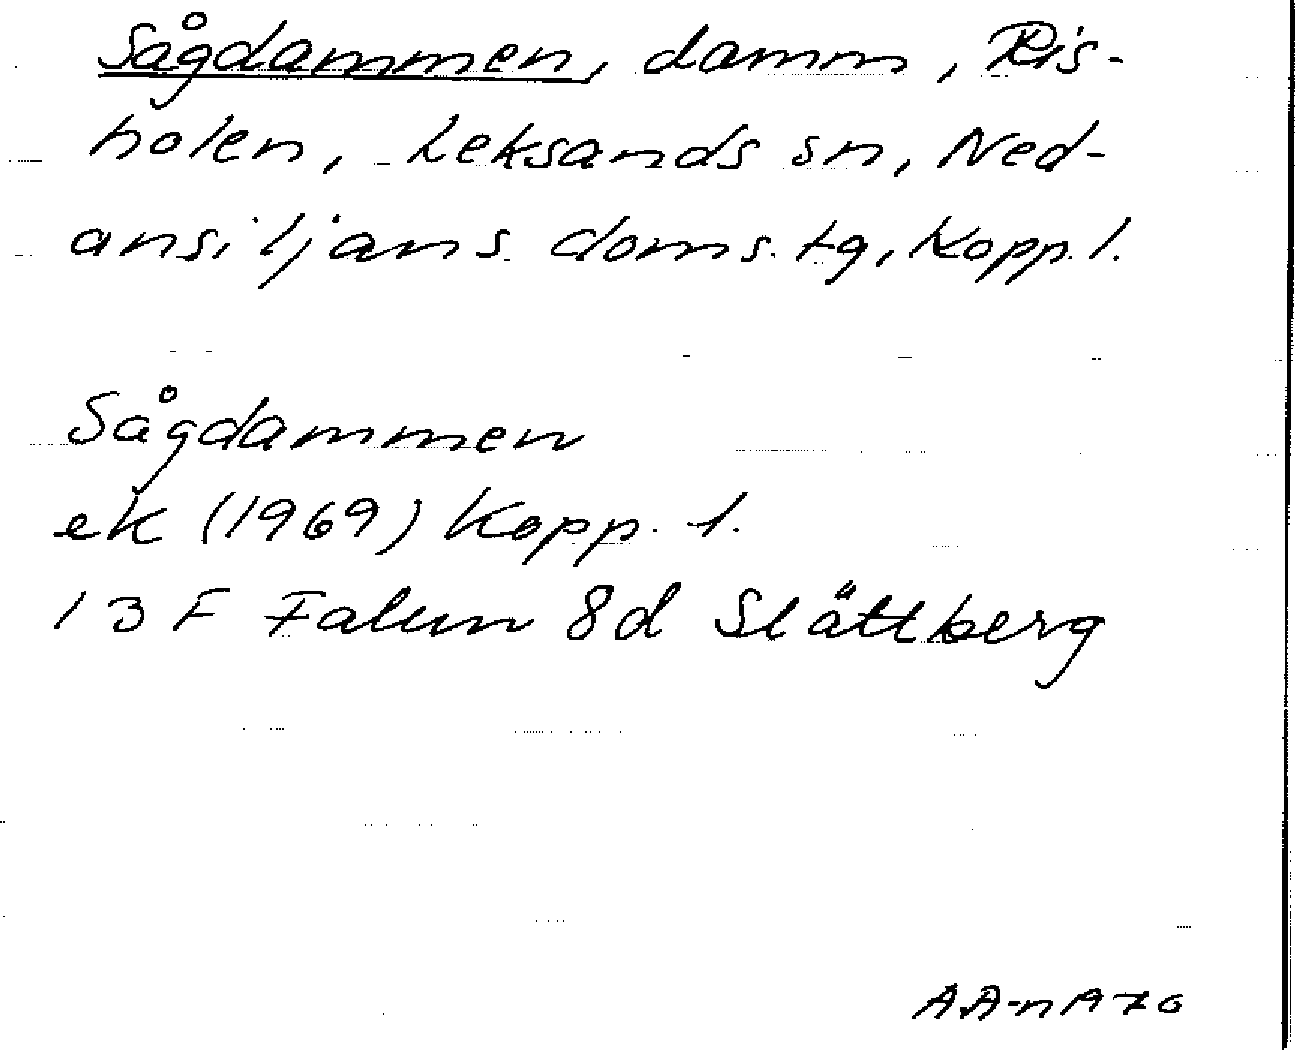 Sågdammen, damm, Ris-
holen, Leksands sn, Ned-
ansiljans doms. tg, Kopp. l.
Sågdammen
ek (1969) Kopp. l.
13 F Falun 8d Slättberg
AA-n 1970